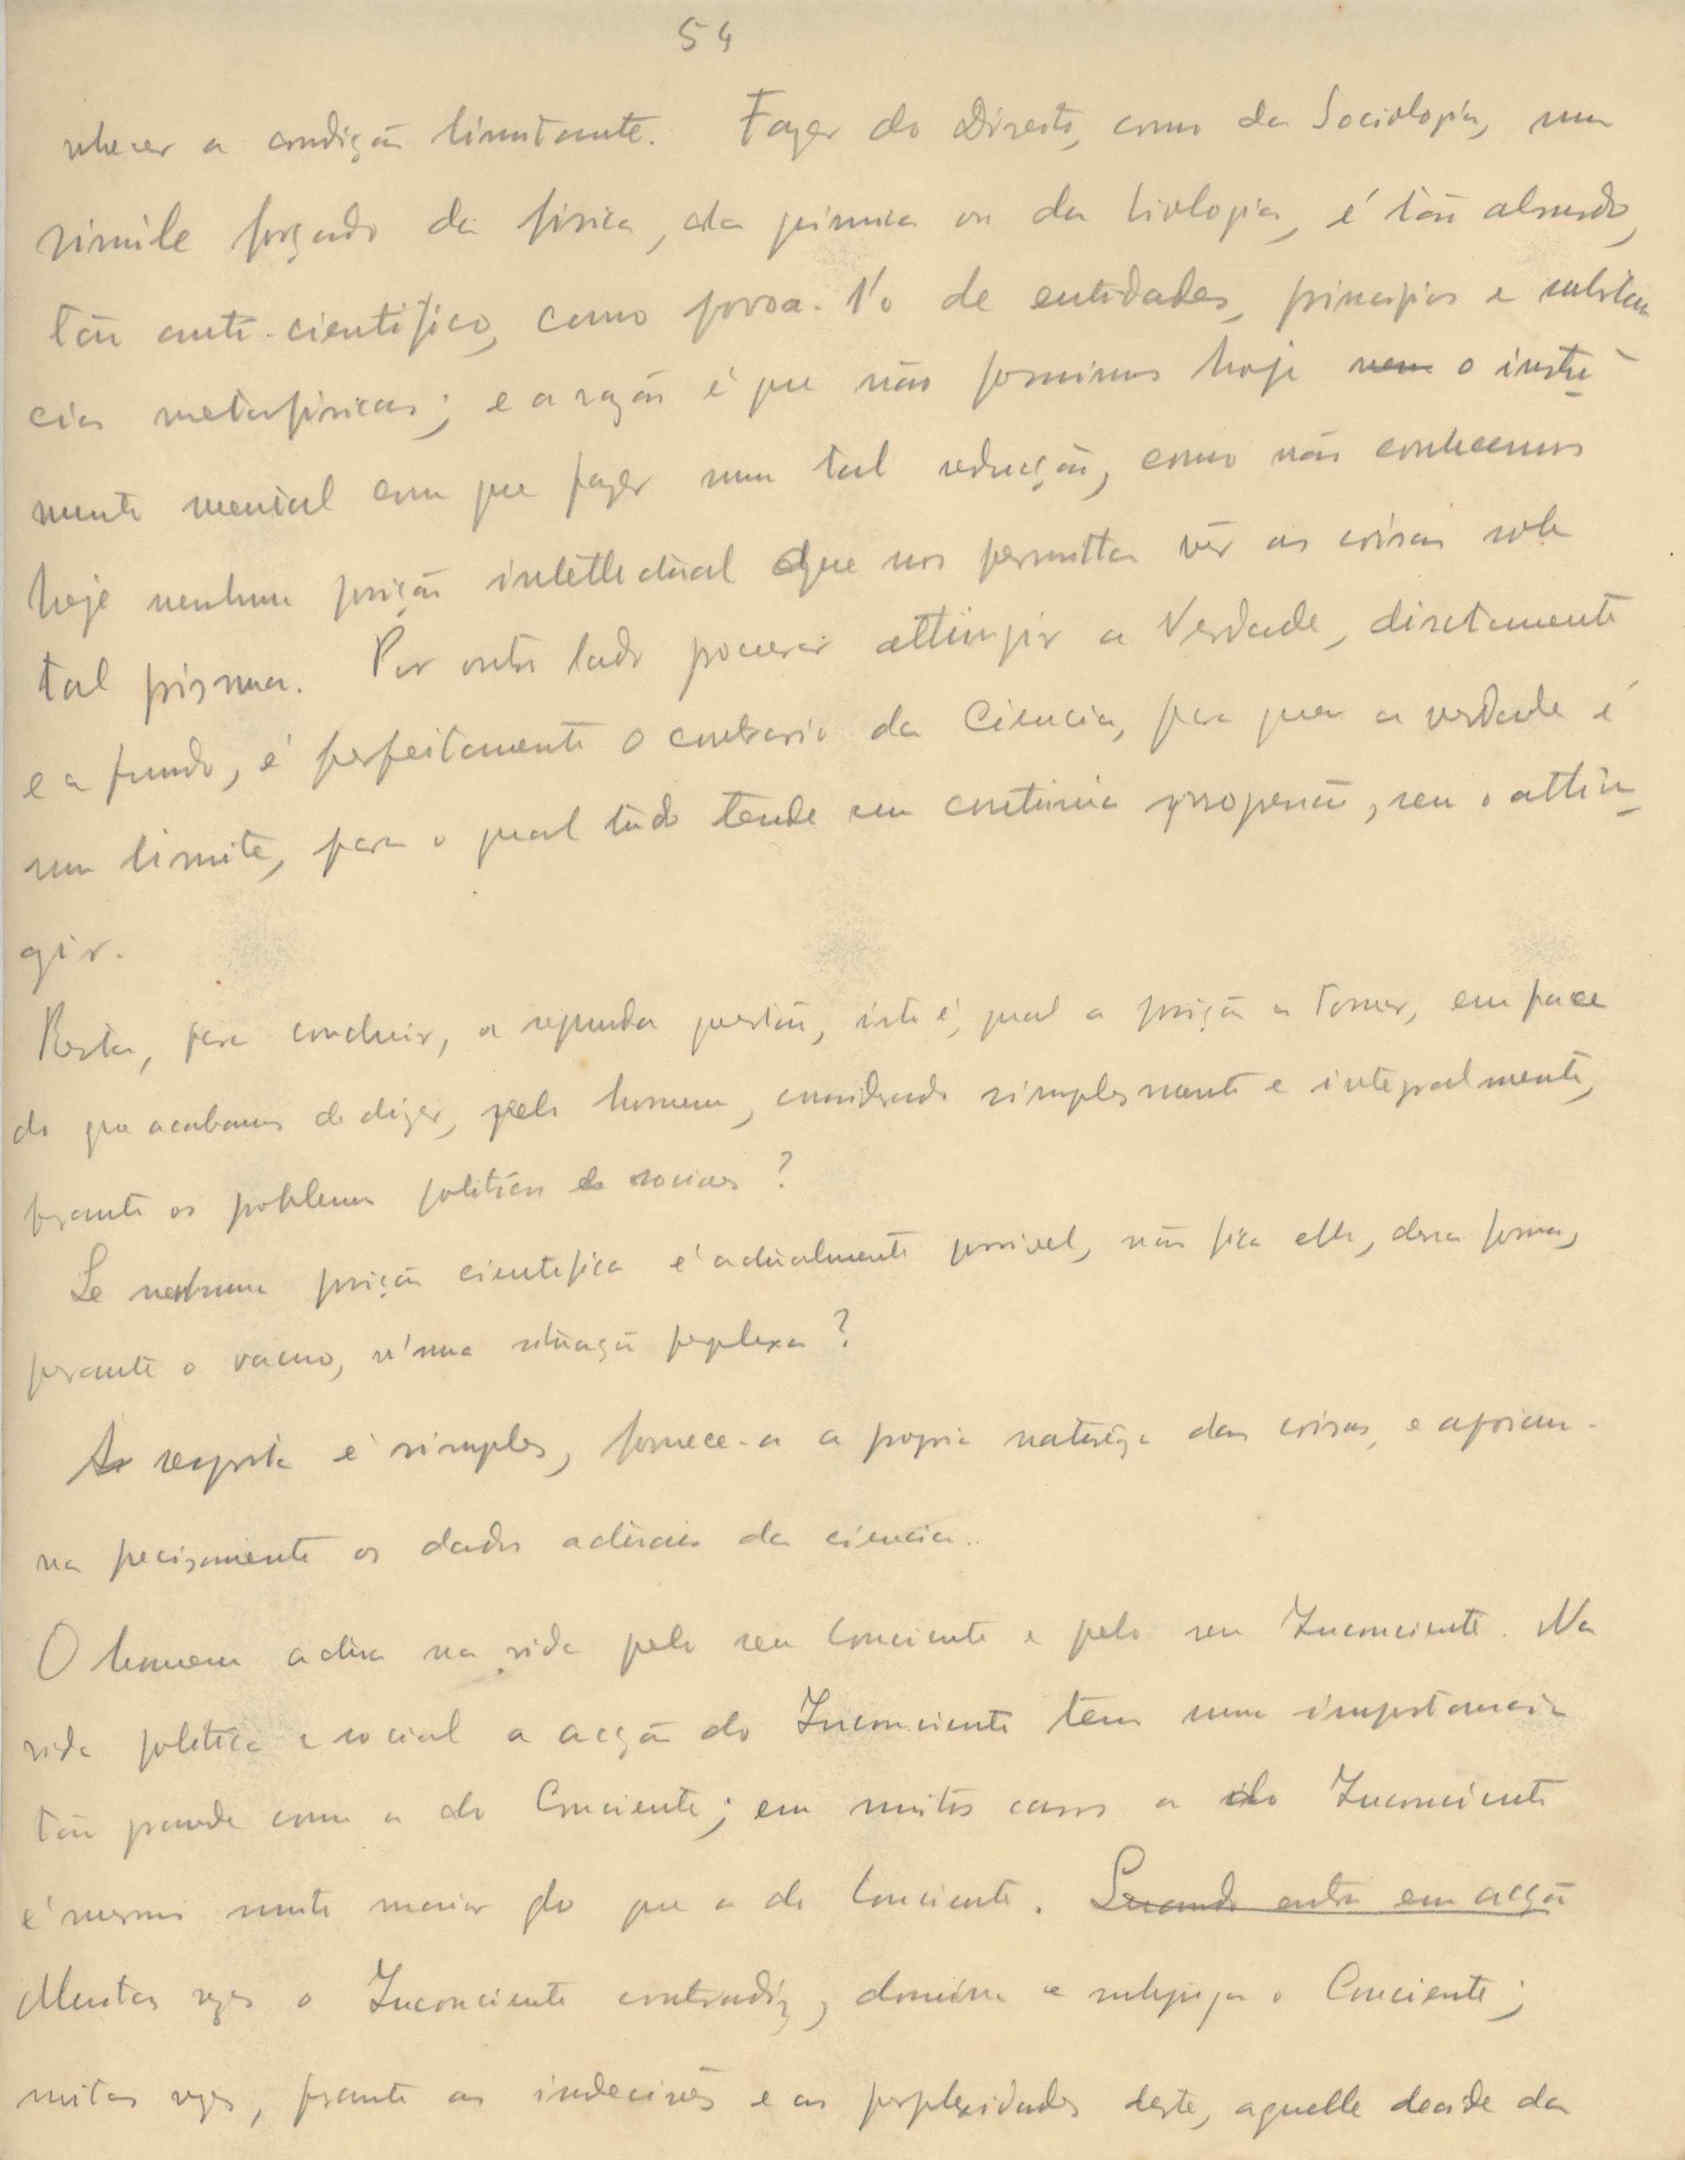 54
nhecer a condição limitante. Fazer do Direito, como da Sociologia, um
simile forçado da fisica, da quimica ou da biologia, é tão absurdo,
tão anti-cientifico, como povoa-l'o de entidades, principios e substan
cias metafisicas; e a razão é que não possuimos hoje nem o instru-
mento mental com que fazer uma tal redução, como não conhecemos
hoje nenhuma posição intellectual que nos permitta vêr as coisas sob
tal prisma. Por outro lado procurar attingir a Verdade, diretamente
e a fundo, é perfeitamente o contrario da Ciencia, para quem a verdade é
um limite, para o qual tudo tende em continua, sem o attin-
gir.
Resta, para concluir, a segunda questão, isto é, qual a posição a tomar, em face
do que acabamos de dizer, pelo homem, considerado simplesmente e integralmente,
perante os problemas politicos e sociaes?
Se nenhuma posição cientifica é actualmente possivel, não fica elle, dessa forma,
perante o vacuo, n'uma situação perplexa?
A resposta é simples, fornece-a a propria natureza das coisas, e
na precisamente os dados actuaes da ciencia..
O homem actua na vida pelo seu Conciente e pelo seu Inconciente. Na
vida politica e social a acção do Inconciente tem uma importancia
tão grande como a do Conciente; em muitos casos a do Inconciente
é mesmo muito maior do que a do Conciente. Quando entra em acção
Muitas vezes o Inconciente contradiz, domina e subjuga o Conciente;
muitas vezes, perante as indecisões e as perplexidades deste, aquelle decide da